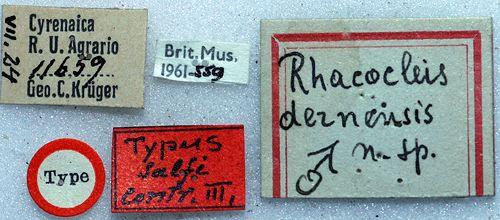 VII. 24
Cyrenaica
R. U. Agrario
11659
Geo. C. Krüger
Brit. Mus.
1961-559
Rhacocleis
dernensis
♂ n. sp.
Type
Typus
Salfi
Contr. III,